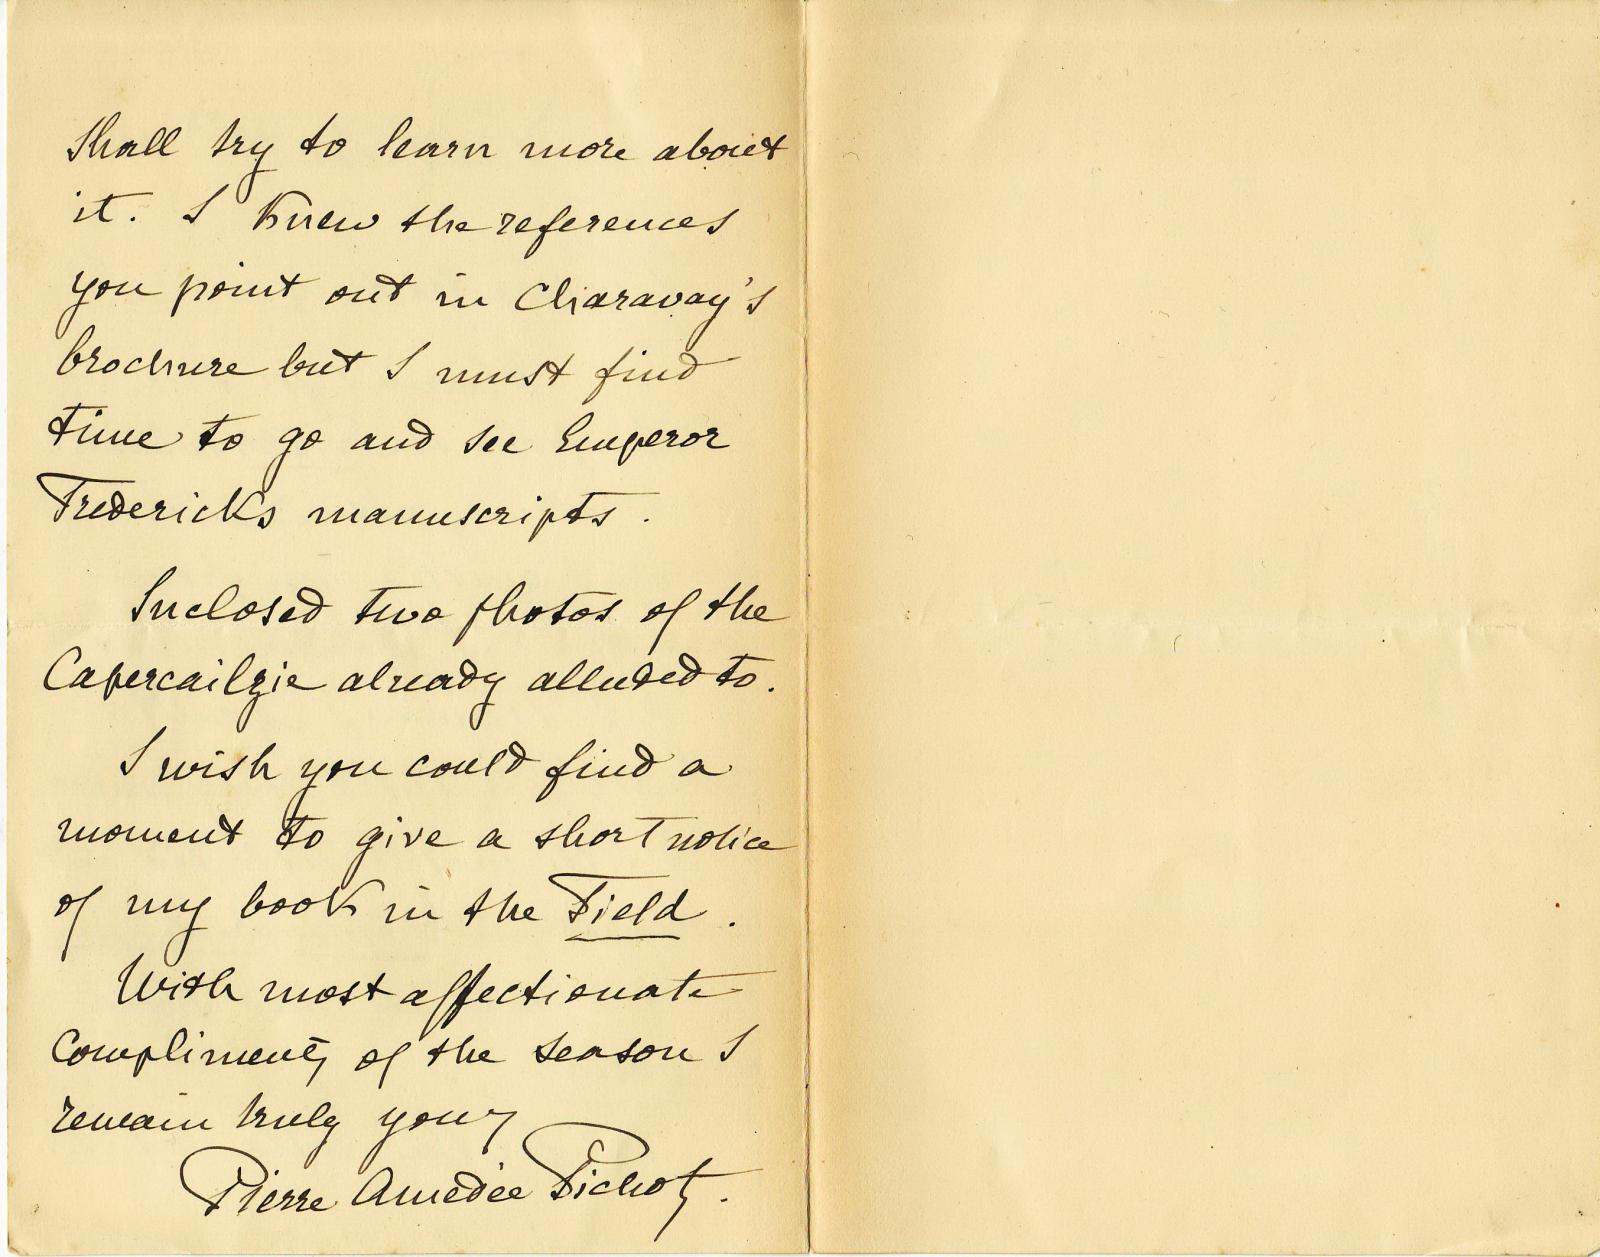 Shall try to learn more about
it. I Knew the references
you point out in Charavay's
brochure but I must find
time to go and see Emperor
Fredericks manuscripts.
Inclosed two photos of the
Capercailzie already alluded to.
I wish you could find a
moment to give a short notice
of my book in the Field.
With most affectionate
Compliments of the season I
remain truly yours
Pierre Amédée Pichot.